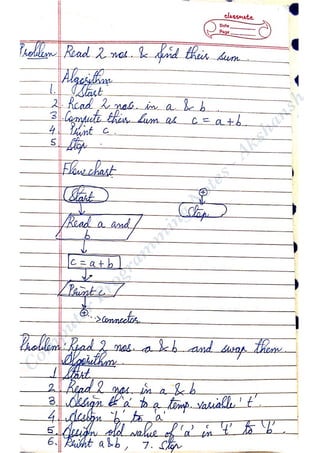 classmate
Date
Page
Problem Read 2 nos. & find their sum.
Algorithm
1. Start
2. Read 2 nos. in a & b.
3. Compute their sum as c = a+b
4. Print c.
5. Stop
Flowchart
Start
Stop
Read a and
b
c = a+b
Print c
→ connector
Problem: Read 2 nos. a & b and swap them.
Algorithm
1. Start
2. Read 2 nos. in a & b
3. Assign 'a' to a temp. variable 't'.
4. Assign 'b' to 'a'
5. Assign old value of 'a' in 't' to 'b'.
6. Print a & b, 7. Stop
Computer Programming Notes - Akshansh